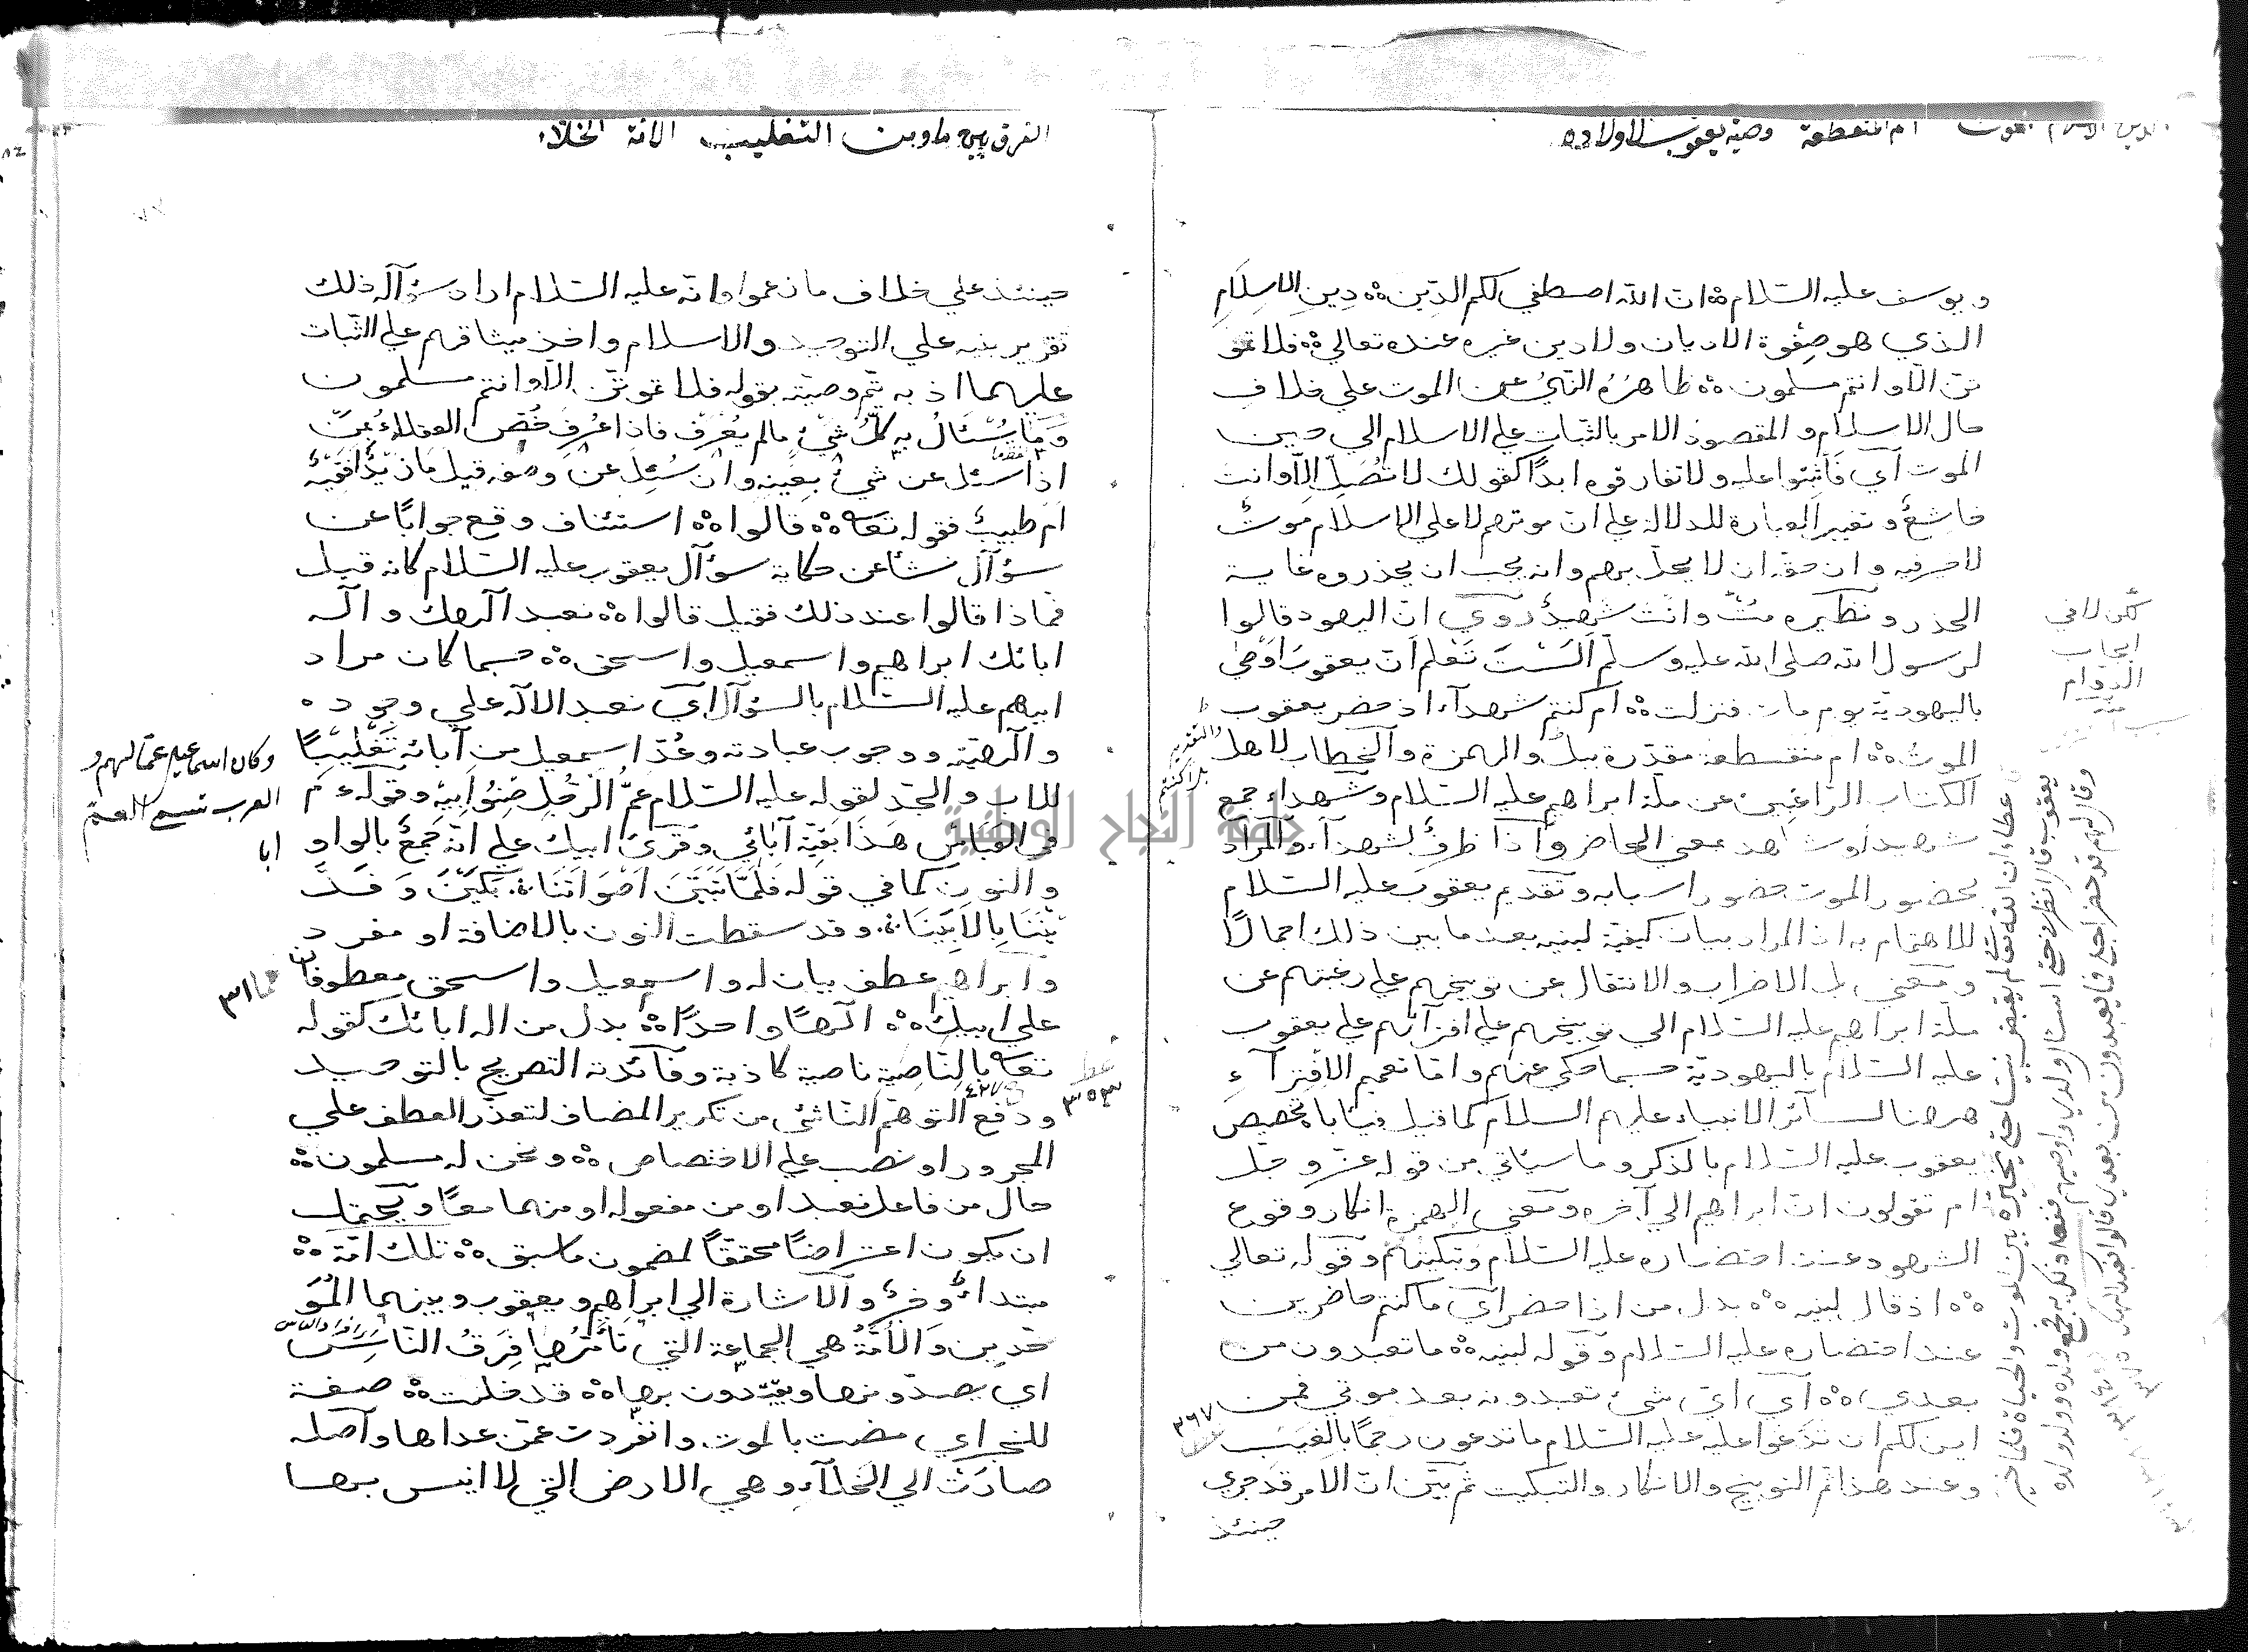 ام المنقطعة وصية يعقوب لاولاده
و يوسف عليه السّلام ۀ انّ الله اصطفي لكم الدّين ۀ دِينِ الاِسلَامِ
الذي هو صِفوة الاديان ولا دين غيره عنده تعالي ۀ فلا تمو
تنّ الّا وانتم مسلمون ۀ ظاهرُهُ النّهيُ عن الموت علي خلافِ
حال الاسلام و المقصود الامر بالثّبات علي الاسلام الي حين
الموت اَي فَاثبتوا عليه ولا تفارقوه ابدًا كقولك لا تُصَلِّ اِلّا وانت
خاشِعٌ و تغيير العبارة للدلالة علي انّ موتهم لا علي الاسلام موتٌ
لا خير فيه و ان حقّه ان لا يحلّ بهم وانه يجب ان يحذروه غاية
الحذر و نظيره مُتْ وانْتَ شهيدٌ رُوِيَ انّ اليهود قالوا
لرسول الله صلى الله عليه وسلّم اَلَسْتَ تَعْلَم اَنّ يعقوبَ اَوْصَى
باليهوديّة يوم مات فنزلت ۀ اَم كنتم شهدآء اذ حضر يعقوب
الموتُ ۀ ام منقطعة مقدّرة ببل والهمزة والخطاب لاهل
الكتاب الرّاغبين عن ملّة ابراهيم عليه السّلام و شهداء جمع
شهيد او شاهد بمعني الحاضر و اذ ظرفٌ لشهدآء والمراد
بحضور الموت حضور اسبابه و تقديم يعقوبَ عليه السّلام
للاهتمام به اذ المراد بيان كيفيّة لبنيه بعد ما بين ذلك اجمالًا
و معني بل الاضراب والانتقال عن توبيخهم علي رغبتهم عن
ملّة ابراهيم عليه السّلام الي توبيخهم علي افترائهم علي يعقوب
عليه السّلام باليهوديّة حسبما حكي عنهم وامّا تعميم الافترآءِ
ههنا لسآئر الانبياء عليهم السلام كما قيل فيأباه تخصيص
يعقوب عليه السّلام بالذكر و ما سيأتي من قوله عزّ و جلّ
ام تقولون انّ ابراهيم الي آخره و معني الهمزة انكار وقوع
الشهود عند احتضاره عليه السّلام و تبكيتهم و قوله تعالي
ۀ اذ قال لبنيه ۀ بدل من اذ حضر اَي ما كنتم حاضرين
عند احتضاره عليه السّلام و قوله لبنيه ۀ ما تعبدون من
بعدي ۀ اَي ايّ شئ تعبدونه بعد موتي فمن
اين لكم ان تدّعوا عليه عليه السّلام ما تدعون رجمًا بالغيب
و عند هذا تمّ التوبيخ والانكار والتبكيت ثم بيّن انّ الامر قد جري
حينئذ
لكن لا في
ايجاب
الدوام
والتقدير
بل اكنتم
٣٦٧
الفرق بين ما ومن التغليب الامة الخلاء
حينئذ علي خلاف ما زعموا وانّه عليه السّلام اراد بسؤآله ذلك
تقرير بنيه علي التوحيد والاسلام واخذ ميثاقهم علي الثّبات
عليهما اذ به يتمّ وصيّته بقوله فلا تموتنّ الّا وانتم مسلمون
وَمَا يُسْئَالُ بِه كُلُّ شيْ مالم يُعْرَف فاذا عُرِفَ خُصَّ العقلاءُ بمَنْ
اذا سئل عن شيْ بعَينِه وان سُئِلَ عن وصفه قيل ما زيدٌ افَقِيهٌ
اَم طبيبٌ فقوله تعا ۀ قالوا ۀ استئناف وقع جوابًا عن
سؤآل نشأ عن حكاية سؤآل يعقوب عليه السّلام كانه قيل
فماذا قالوا عند ذلك فقيل قالوا ۀ نعبد آلهك و اله
ابائك ابراهيم و اسمعيل واسحق ۀ حسبما كان مراد
ابيهم عليه السّلام بالسؤآل اَي نعبد الاله علي وجوده
والهيّته و وجوب عبادته وعُدّ اسمعيل من آبائه تَغْليبًا
للاب والجدّ لقوله عليه السّلام عمُّ الرّجُلِ صِنْوُ اَبِيهِ وقولِه ءم
في العَبّاسِ هَذَا بَقيّة آبَائي وقرئ ابيك علي انّه جمعٌ بالواو
والنون كما في قوله فلمّا تَبَيَّنَ اَصْوَاتَنَا ؞ بَكَيْنَ وَفَدَّ
يْنَنَا بِالاَبِينَا ؞ وقد سقطت النون بالاضافة او مفرد
وابراهيم عطف بيان له و اسمعيل و اسحق معطوفان
علي ابيك ۀ الهًا واحدًا ۀ بدل من اله ابائك كقوله
تعا بالنّاصيةِ ناصية كاذبة وفآئدته التصريح بالتوحيد
و دفع التوهّم النّاشئ من تكرير المضاف لتعذر العطف علي
المجرور او نصب علي الاختصاص ۀ و نحن له مسلمون ۀ
حال من فاعل نعبد او من مفعوله او منهما معًا و يحتمل
ان يكون اعتراضًا محققًا لمضمون ما سبق ۀ تلك امّة ۀ
مبتداءٌ وخبرٌ والاشارة الي ابراهيم و يعقوب و بنيهما المُوَ
حّدين وَالاُمّةُ هي الجماعة التي تأمّها فِرَقُ النّاسِ
اي يقصدونها ويقتدون بها ۀ قد خلت ۀ صفة
للخبر اي مضت بالموت وانفردت عمّن عداها واصله
صارَتْ الي الخلآءِ وهي الارض التي لا انيس بها
وكان اسماعيل عمّا لهم و
العرب تسمي العمّ
ابا
٣٥٣